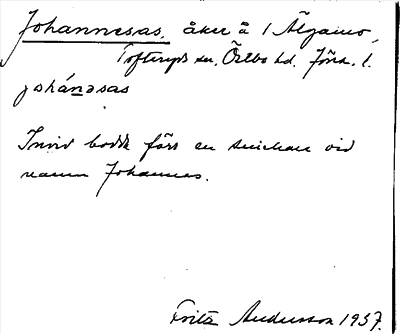 Johannesas, åker å 1 Älgamo,
Tofteryds sn, Östbo hd. Jönk. l.
johánəsas
Invid bodde förr en snickare vid
namn Johannes.
Fritz Andersson 1937.